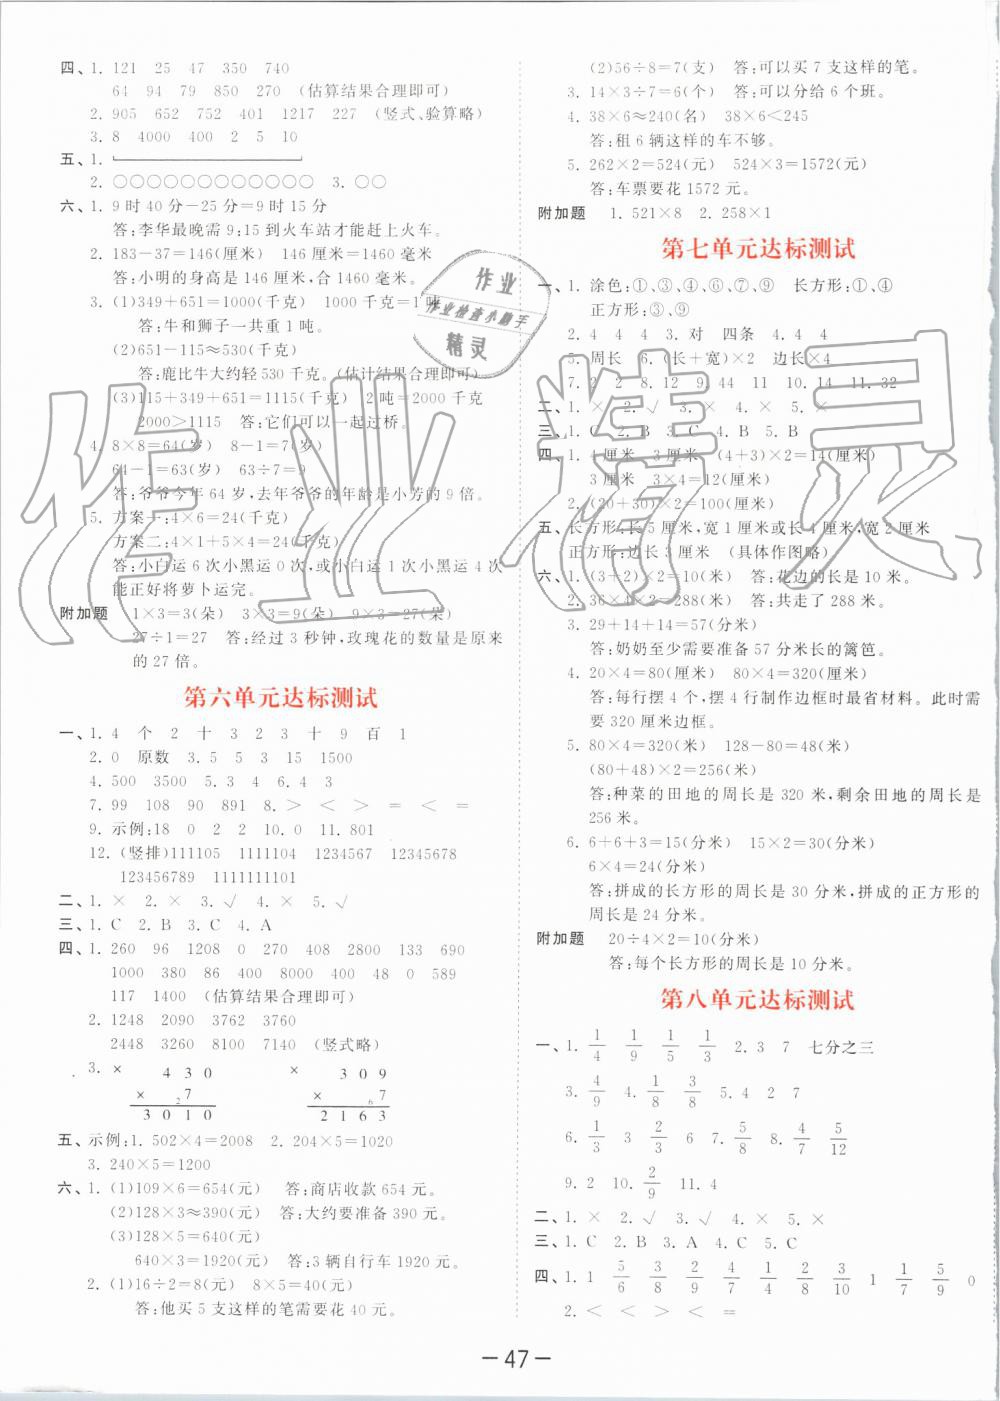 四、1. 121 25 47 350 740
64 94 79 850 270 (估算结果合理即可)
2. 905 652 752 401 1217 227 (竖式、验算略)
3. 8 4000 400 2 5 10
五、1.
2. ○○○○○○○○○○○○ 3. ○○
六、1. 9时40分-25分=9时15分
答:李华最晚需9:15到火车站才能赶上火车。
2. 183-37=146(厘米) 146厘米=1460毫米
答:小明的身高是146厘米,合1460毫米。
3. (1)349+651=1000(千克) 1000千克=1吨
答:牛和狮子一共重1吨。
(2)651-115≈530(千克)
答:鹿比牛大约轻530千克。(估计结果合理即可)
(3)115+349+651=1115(千克) 2吨=2000千克
2000>1115 答:它们可以一起过桥。
4. 8×8=64(岁) 8-1=7(岁)
64-1=63(岁) 63÷7=9
答:爷爷今年64岁,去年爷爷的年龄是小芳的9倍。
5. 方案一:4×6=24(千克)
方案二:4×1+5×4=24(千克)
答:小白运6次小黑运0次,或小白运1次小黑运4次
能正好将萝卜运完。
附加题 1×3=3(朵) 3×3=9(朵) 9×3=27(朵)
27÷1=27 答:经过3秒钟,玫瑰花的数量是原来
的27倍。
第六单元达标测试
一、1. 4 个 2 十 3 2 3 十 9 百 1
2. 0 原数 3. 5 5 3 15 1500
4. 500 3500 5. 3 4 6. 4 3
7. 99 108 90 891 8. > < = < =
9. 示例:18 0 2 2 10. 0 11. 801
12. (竖排)111105 1111104 1234567 12345678
123456789 1111111101
二、1. × 2. × 3. √ 4. × 5. √
三、1. C 2. B 3. C 4. A
四、1. 260 96 1208 0 270 408 2800 133 690
1000 380 86 400 8000 400 48 0 589
117 1400 (估算结果合理即可)
2. 1248 2090 3762 3760
2448 3260 8100 7140 (竖式略)
3. × 430 × 309
× 27 × 67
3010 2163
五、示例:1. 502×4=2008 2. 204×5=1020
3. 240×5=1200
六、1. (1)109×6=654(元) 答:商店收款654元。
(2)128×3≈390(元) 答:大约要准备390元。
(3)128×5=640(元)
640×3=1920(元) 答:3辆自行车1920元。
2. (1)16÷2=8(元) 8×5=40(元)
答:他买5支这样的笔需要花40元。
(2)56÷8=7(支) 答:可以买7支这样的笔。
3. 14×3÷7=6(个) 答:可以分给6个班。
4. 38×6≈240(名) 38×6<245
答:租6辆这样的车不够。
5. 262×2=524(元) 524×3=1572(元)
答:车票要花1572元。
附加题 1. 521×8 2. 258×1
第七单元达标测试
一、1. 涂色:①、③、④、⑥、⑦、⑨ 长方形:①、④
正方形:③、⑨
2. 4 4 4 3. 对 四条 4. 4 4
5. 周长 6. (长+宽)×2 边长×4
7. 2 2 8. 12 9. 44 11 10. 14 11. 32
二、1. × 2. √ 3. × 4. × 5. ×
三、1. C 2. B 3. C 4. B 5. B
四、1. 4厘米 3厘米 (4+3)×2=14(厘米)
3厘米 3×4=12(厘米)
2. (20+30)×2=100(厘米)
五、长方形:长5厘米,宽1厘米或长4厘米,宽2厘米
正方形:边长3厘米 (具体作图略)
六、1. (3+2)×2=10(米) 答:花边的长是10米。
2. 36×4×2=288(米) 答:共走了288米。
3. 29+14+14=57(分米)
答:奶奶至少需要准备57分米长的篱笆。
4. 20×4=80(厘米) 80×4=320(厘米)
答:每行摆4个,摆4行制作边框时最省材料。此时需
要320厘米边框。
5. 80×4=320(米) 128-80=48(米)
(80+48)×2=256(米)
答:种菜的田地的周长是320米,剩余田地的周长是
256米。
6. 6+6+3=15(分米) 15×2=30(分米)
6×4=24(分米)
答:拼成的长方形的周长是30分米,拼成的正方形的
周长是24分米。
附加题 20÷4×2=10(分米)
答:每个长方形的周长是10分米。
第八单元达标测试
一、1. 1/4 1/9 1/5 1/3 2. 3 7 七分之三
3. 4/9 4. 1/8 3/8 5. 4 2 7
6. 1/3 3 2/3 6 7. 5/8 8. 4/7 5/12
9. 2 10. 2/9 11. 4
二、1. × 2. √ 3. √ 4. × 5. ×
三、1. C 2. B 3. A 4. C 5. C
四、1. 1 5/6 3/8 2/9 4/7 1/4 2/8 3/10 1 1/7 5/9 0
2. < < > < =
作业
作业检查小助手
精灵
作业精灵
— 47 —